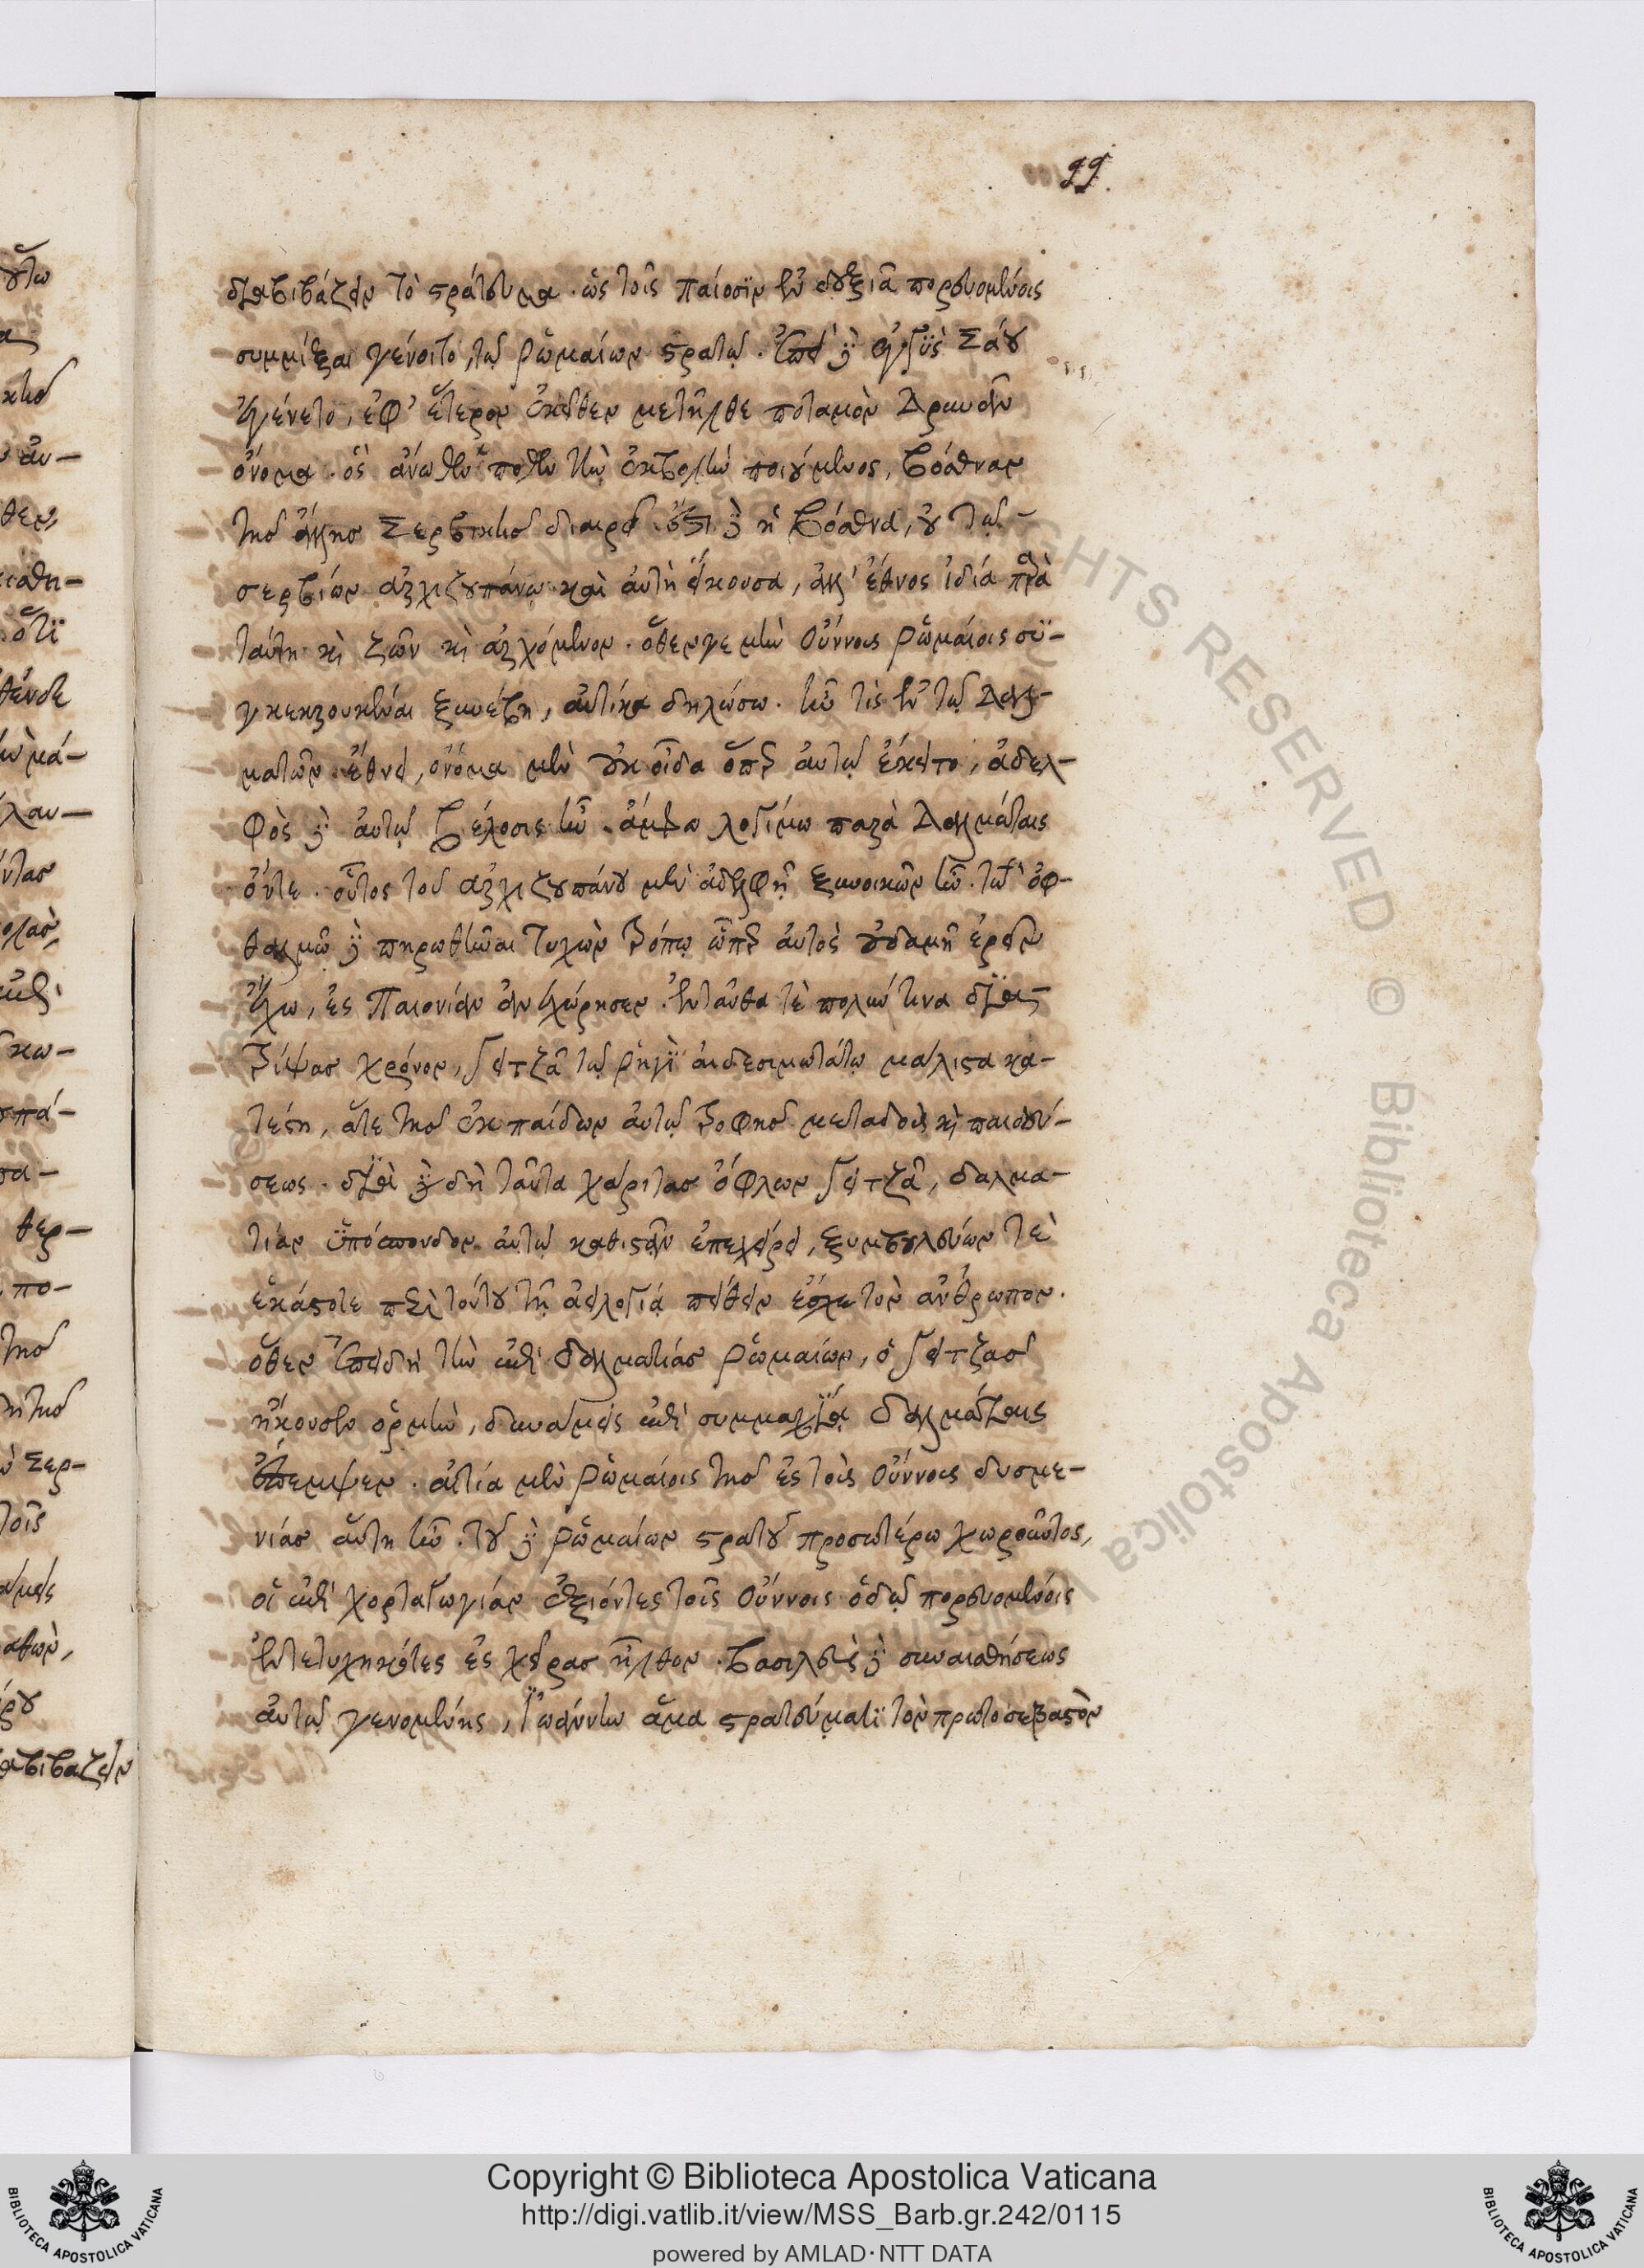 99
διαβιβάζειν τὸ στράτευμα. ὡς τοῖς παίοσϊν ἐν δεξιᾶ πορευομένοις
συμμίξαι γένοιτο, τῷ ῥωμαίων στρατῷ. ἐπεὶ δὲ ἐγγὺς Σάου
ἐγένετο, ἐφ' ἕτερον ἐκεῖθεν μετῆλθε ποταμὸν Δρυμοῦν
ὄνομα. ὃς ἄνωθέν ποθεν τὴν ἐκβολὴν ποιούμενος, βόσθναν
τῆς ἄλλης Σερβικῆς διαιρεῖ. ἔστι δὲ ἡ βόσθνα, οὐ τῷ
σερβίων ἀρχιζουπάνῳ καὶ αὐτὴ εἴκουσα, ἀλλ' ἔθνος ἰδίᾳ παρὰ
ταύτη καὶ ζῶν καὶ ἀρχόμενον. ὅθεν γε μὴν Οὔννοις ῥωμαίοις συ-
γκεκρουκέναι ξυνέβη, αὐτίκα δηλώσω. ἦν τὶς ἐν τῷ Δαλ-
ματῶν ἔθνει, ὄνομα μὲν οὐκ οἶδα ὅπερ αὐτῷ ἔκειτο, ἀδελ-
φὸς δὲ αὐτῷ βέλοσις ἦν. ἄμφω λογίμω παρὰ Δαλμάταις
ὄντε. οὗτος τοῦ ἀρχιζουπάνου μὲν ἀδελφῇ ξυνοικῶν ἦν. τὼ ὀφ-
θαλμὼ δὲ πηρωθῆναι τυχὼν τρόπῳ ὧπερ αὐτὸς οὐδαμῆ ἐρεῖν
ἔχω, ἐς Παιονίαν ἀνεχώρησεν. ἐνταῦθα τὲ πολύν τινα δϊα-
τρίψας χρόνον, Ἰετζᾶ τῷ ῥηγῒ αἰδεσιμωτάτῳ μάλιστα κα-
τέστη, ἅτε τῆς ἐκ παίδων αὐτῷ τροφῆς μεταδοὺς καὶ παιδεύ-
σεως. διὰ δὲ δὴ ταῦτα χάριτας ὄφλων Ἰετζᾶ, δαλμα-
τίαν ὑπόσπονδον αὐτῷ καθιστᾶν ἐπεχείρει, ξυμβουλεύων τὲ
ἑκάστοτε περὶ τούτου τῇ ἀειλογίᾳ πείθειν ἔσχε τὸν ἄνθρωπον.
ὅθεν ἐπειδὴ τὴν ἐπὶ δαλματίας ῥωμαίων, ὁ Ἰετζᾶς
ἤκουσεν ὁρμὴν, δυνάμεις ἐπὶ συμμαχίᾳ δαλμάταις
ἔπεμψεν. αἰτία μὲν ῥωμαίοις τῆς ἐς τοὺς Οὔννους δυσμε-
νίας αὕτη ἦν. τοῦ δὲ ῥωμαίων στρατοῦ προσωτέρω χωροῦντος,
οἱ ἐπὶ χορταγωγίαν ἐξιόντες τοῖς Οὔννοις ὁδῷ πορευομένοις
ἐντετυχηκότες ἐς χεῖρας ἦλθον. βασιλεὺς δὲ συναισθήσεως
αὐτῷ γενομένης, Ϊωάννην ἅμα στρατεύματϊ τὸν πρωτοσεβαστὸν